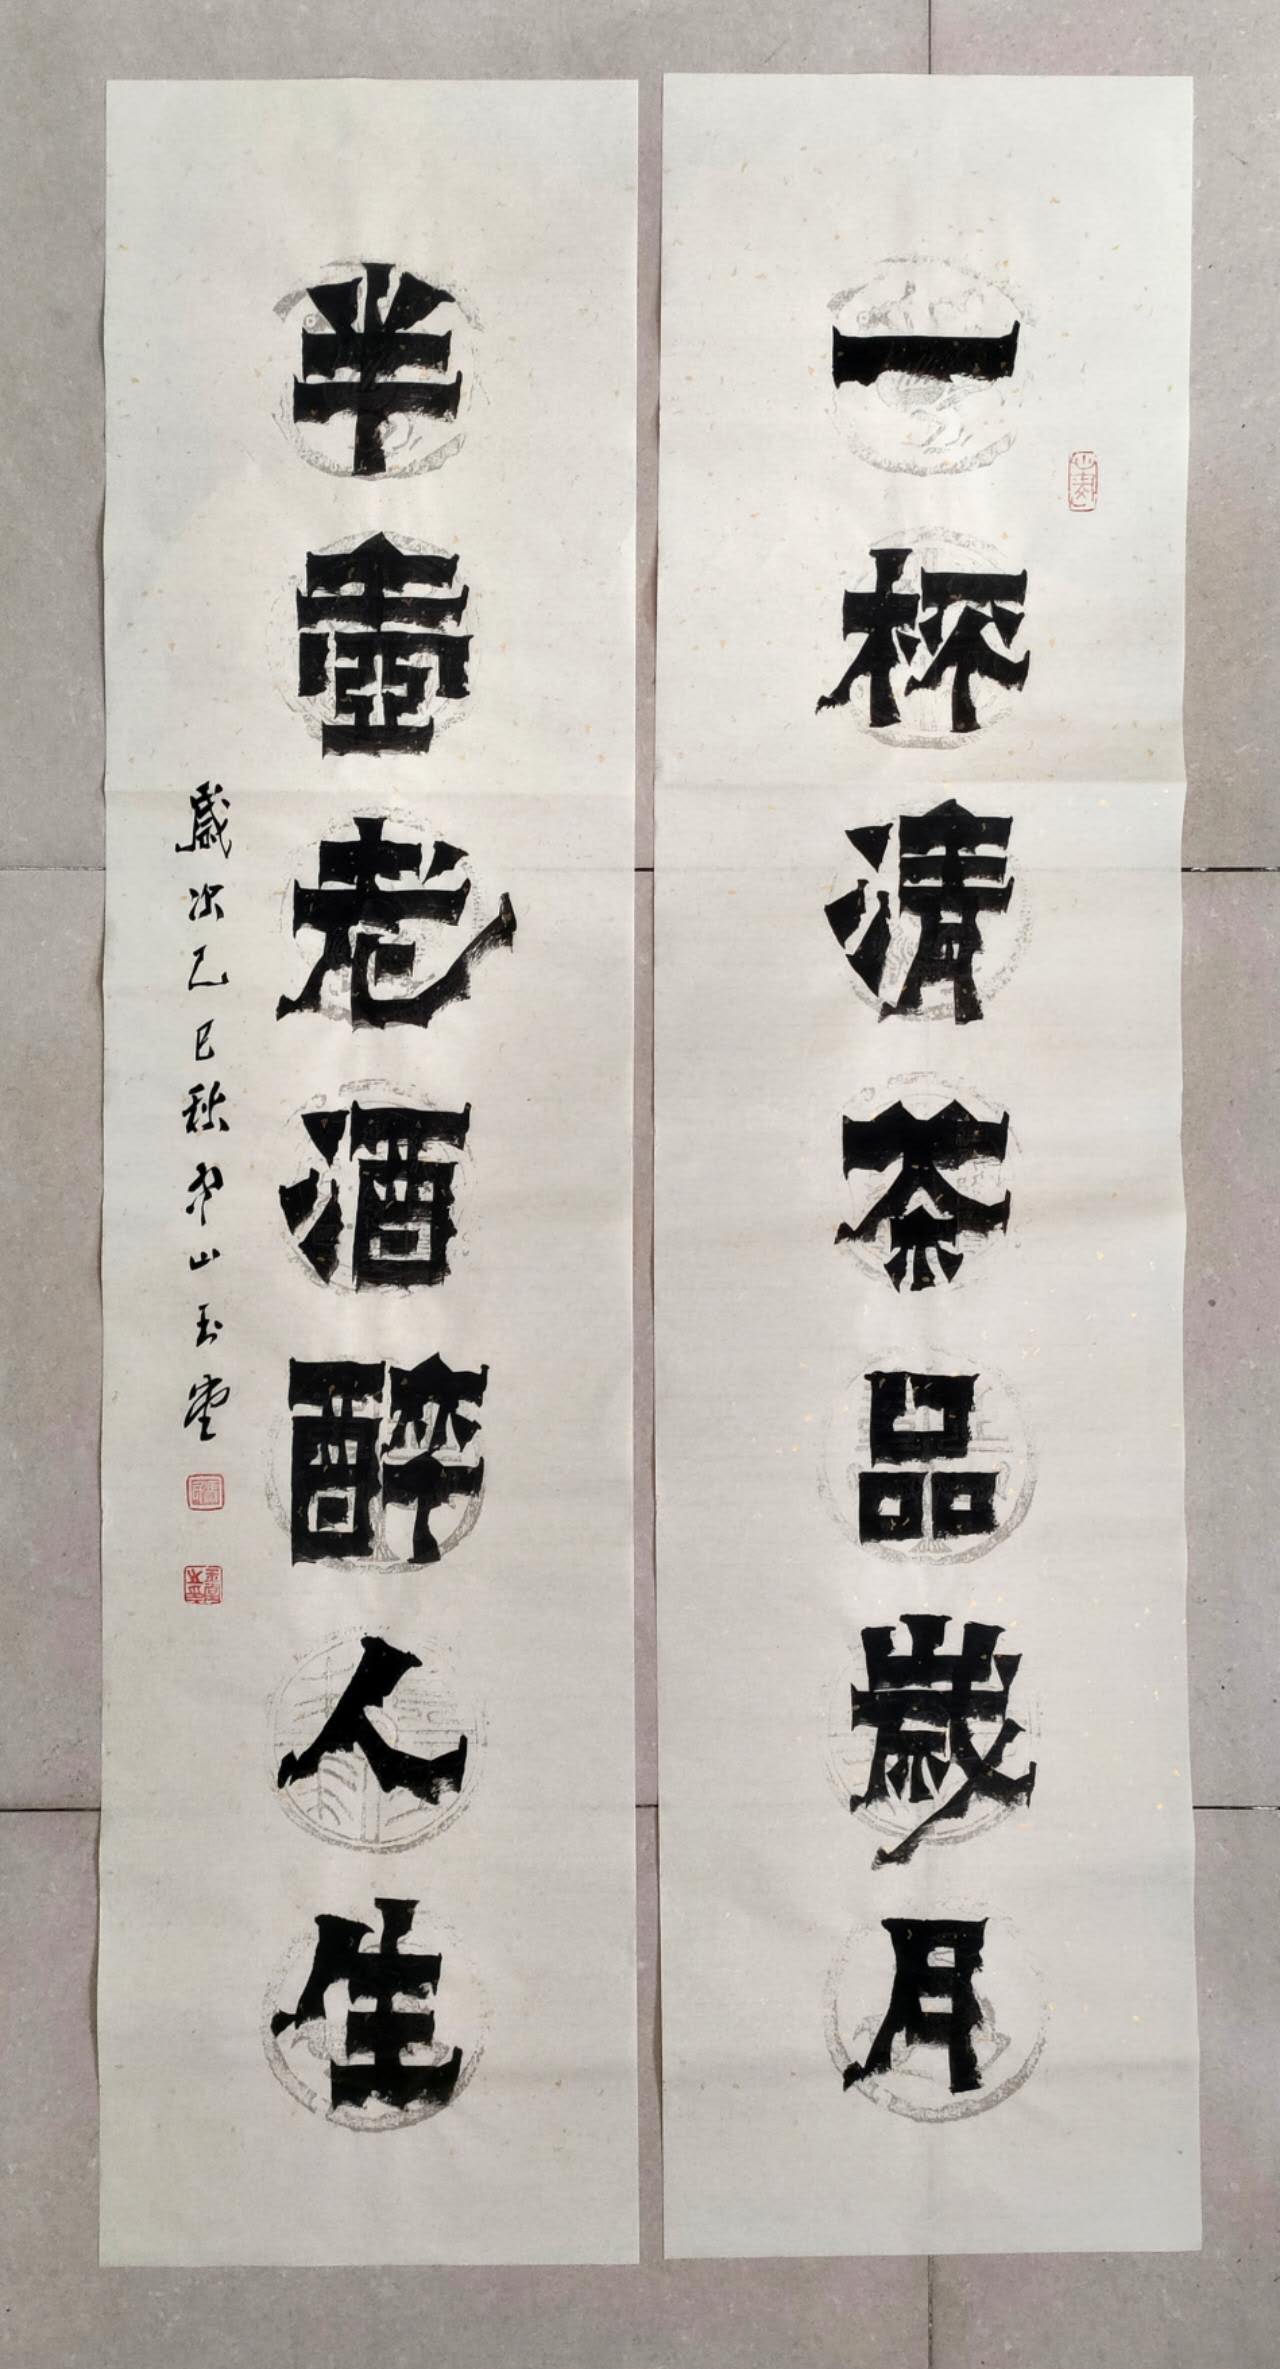 一杯清茶品歲月
半壺老酒醉人生
歲次乙巳秋中山玉堂